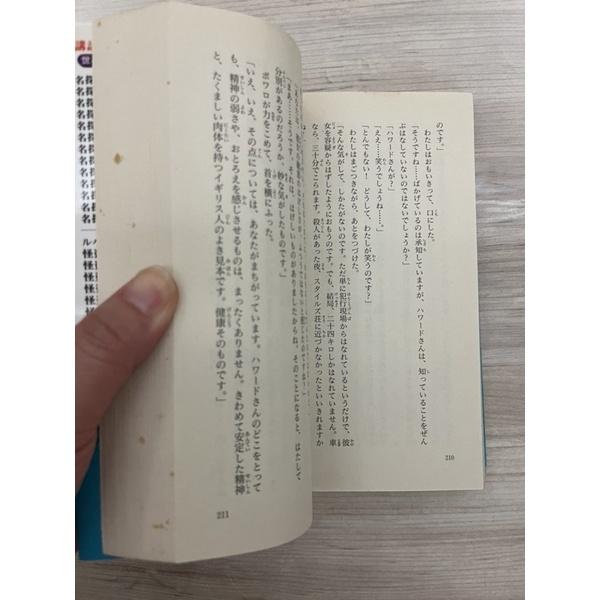 のです。」
わたしはおもいきって、口にした。
「そうですね……ばかげているのは承知していますが、ハワードさんは、知っていることをぜん
ぶはなしていないのではないでしょうか？」
「ハワードさんが？」
「ええ……笑うでしょうね……。」
「とんでもない！　どうして、わたしが笑うのです？」
わたしはまごつきながら、あとをつづけた。
「そんな気がして、しかたがないのです。ただ単に犯行現場からはなれているというだけで、彼
女を容疑からはずしたようにおもうのです。でも、結局、二十四キロしかはなれていません。車
なら、三十分でこられます。殺人があった夜、スタイルズ荘に近づかなかったといいきれますか
210
「まあ……そうです。それは、はげしいものがありましたからね。そのことになると、はたして
分別があるのだろうか、妙な気がしたものです。」
ポワロが力をこめて、首を横にふった。
「いえ、いえ、その点については、あなたがまちがっています。ハワードさんのどこをとって
も、精神の弱さや、おとろえを感じさせるものは、まったくありません。きわめて安定した精神
と、たくましい肉体を持つイギリス人のよき見本です。健康そのものです。」
211
講
世